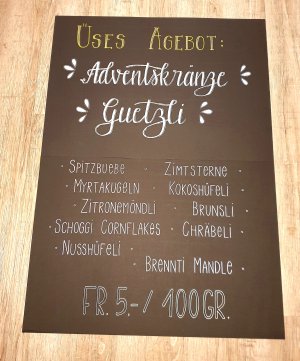 Üses Agebot:
Adventskränze
Guetzli
· Spitzbuebe · Zimtsterne ·
· Myrtakugeln · Kokoshüfeli ·
· Zitronemöndli · Brunsli ·
· Schoggi Cornflakes · Chräbeli ·
· Nusshüfeli ·
· Brennti Mandle ·
Fr. 5.-/100gr.